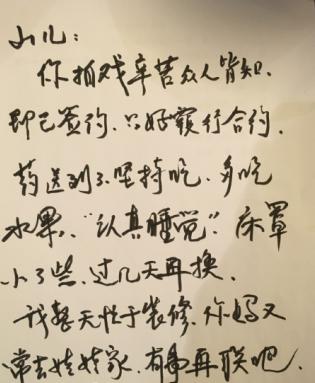 山儿：
你拍戏辛苦众人皆知.
即已签约，只好履行合约.
药送到了.坚持吃、多吃
水果、“认真睡觉”.床罩
小了些、过几天再换.
我整天忙于装修.你妈又
常去娃娃家.有事再联吧.